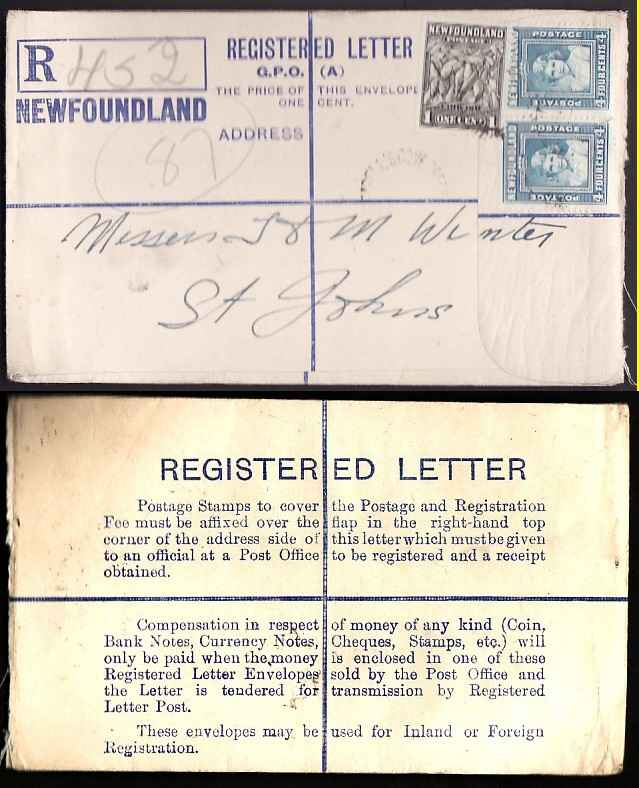 R 452
NEWFOUNDLAND
REGISTERED LETTER
G.P.O. (A)
THE PRICE OF THIS ENVELOPE
ONE CENT.
ADDRESS
87
NEWFOUNDLAND
POSTAGE
1 ONE CENT 1
NEWFOUNDLAND
POSTAGE
4 FOUR CENTS 4
POSTAGE
NEWFOUNDLAND
POSTAGE
4 FOUR CENTS 4
POSTAGE
Messers J & M Winter
St Johns
REGISTERED LETTER
Postage Stamps to cover the Postage and Registration
Fee must be affixed over the flap in the right-hand top
corner of the address side of this letter which must be given
to an official at a Post Office to be registered and a receipt
obtained.
Compensation in respect of money of any kind (Coin,
Bank Notes, Currency Notes, Cheques, Stamps, etc.) will
only be paid when the money is enclosed in one of these
Registered Letter Envelopes sold by the Post Office and
the Letter is tendered for transmission by Registered
Letter Post.
These envelopes may be used for Inland or Foreign
Registration.